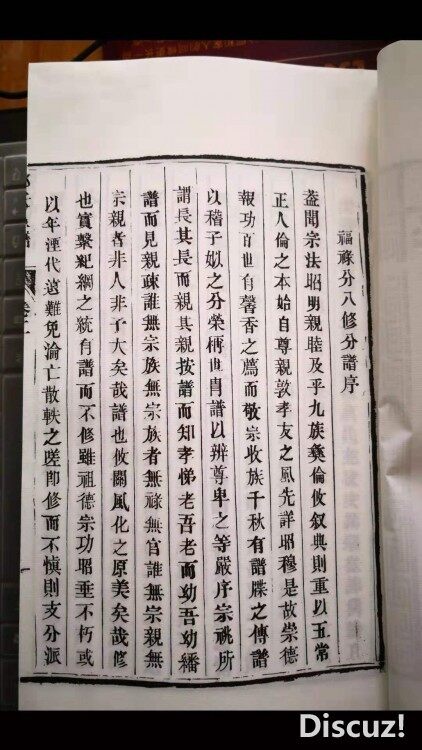 福祿分八修分譜序
蓋聞宗法昭明親睦及乎九族彝倫攸叙典則重以五常
正人倫之本始自尊親敦孝友之風先詳昭穆是故崇德
報功百世有馨香之薦而敬宗收族千秋有譜牒之傳譜
以稽子姒之分榮柄世胄譜以辨尊卑之等嚴序宗祧所
謂長其長而親其親按譜而知孝悌老吾老而幼吾幼繙
譜而見親疎誰無宗族無宗族者無祿無官誰無宗親無
宗親者非人非子大矣哉譜也攸關風化之原美矣哉修
也實繫紀綱之統有譜而不修雖祖德宗功昭垂不朽或
以年湮代遠難免淪亡散軼之嗟即修而不慎則支分派
Discuz!